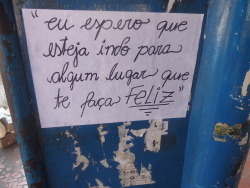 "eu espero que
esteja indo para
algum lugar que
te faça FELIZ"